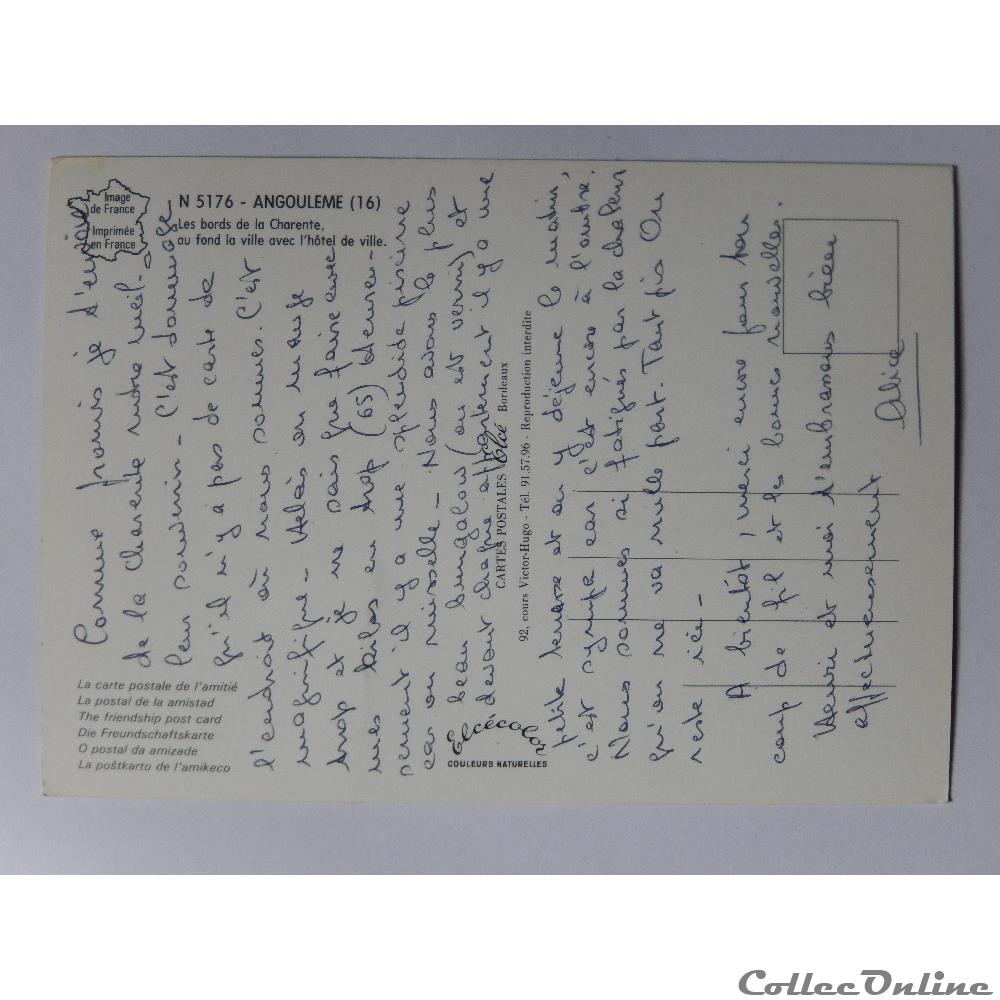 Image
de France
Imprimée
en France
N 5176 - ANGOULEME (16)
Les bords de la Charente,
au fond la ville avec l'hôtel de ville.
Comme promis je t'envoie
de la charente notre meil-
leur souvenir - C'est dommage
qu'il n'y a pas de carte de
l'endroit où nous sommes. C'est
magnifique - Hélas on mange
trop et je ne sais que faire avec
mes kilos en trop (65) Heureu-
sement il y a une splendide piscine
car on ruisselle - Nous avons le plus
beau bungalow (on est verni) et
devant chaque appartement il y a une
petite terrasse et on y déjeune le matin,
c'est sympa car c'est encore à l'ombre.
Nous sommes si fatigués par la chaleur
qu'on ne va nulle part. Tant pis On
reste ici -
A bientôt, merci encore pour ton
coup de fil et les bonnes nouvelles.
Henri et moi t'embrassons bien
affectueusement
Alice
CARTES POSTALES Elcé Bordeaux
92, cours Victor-Hugo - Tél. 91.57.96 - Reproduction interdite
La carte postale de l'amitié
La postal de la amistad
The friendship post card
Die Freundschaftskarte
O postal da amizade
La poŝtkarto de l'amikeco
Elcécolor
COULEURS NATURELLES
CollecOnline